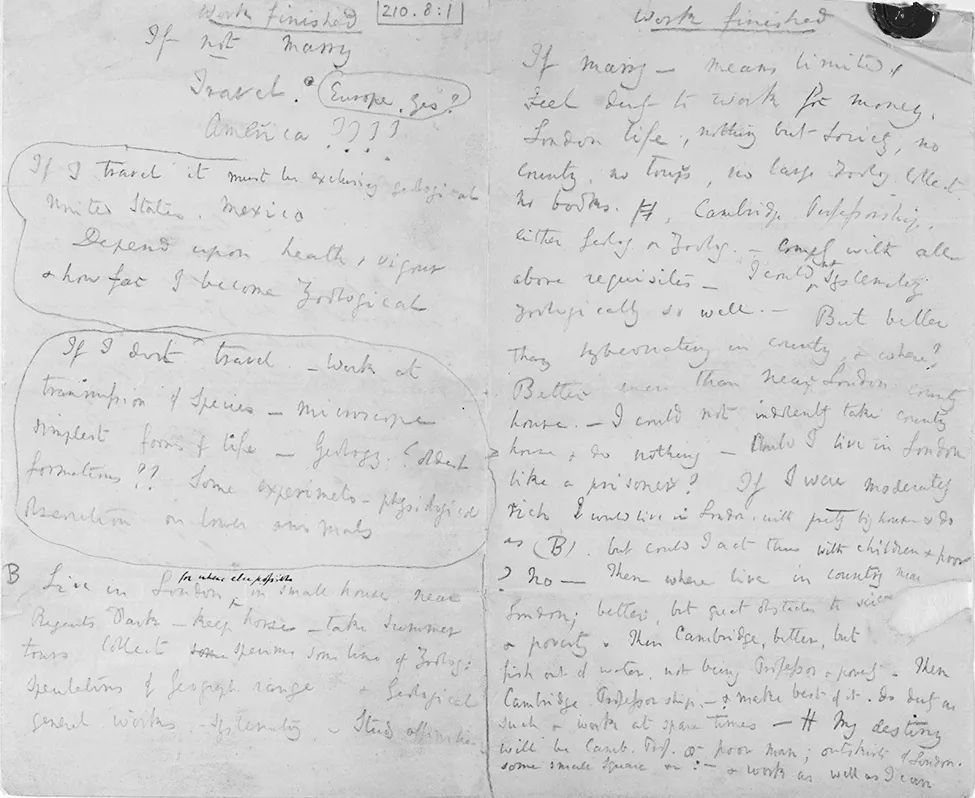 210.8:1
Work finished
If not marry
Travel. Europe, Yes?
America ????
If I travel it must be exclusively geological
United States, Mexico
Depend upon health & vigour
& how far I become Zoological
If I dont travel — Work at
transmission of Species — microscope
simplest forms of life — Geology. ? oldest
formations?? Some experiments — physiological
observation on lower animals
B Live in London for where else possible in small house, near
Regents Park — keep horse — take summer
tours Collect some specimens some line of Zoolog:
Speculations of Geograph. range & Geological
general works — systematiz — Study affinities
Work finished
If marry — means limited,
Feel duty to work for money.
London life, nothing but Society, no
country, no tours, no large Zoolog. Collect.
no books. Cambridge Professorship,
either Geolog. or Zoolog. — comply with all
above requisites — I could not systematiz
zoologically so well. — But better
than hybernating in country, & where?
Better even than near London country
house. — I could not indolently take country
house & do nothing — Could I live in London
like a prisoner? If I were moderately
rich I would live in London, with pretty big house & do
as (B), but could I act thus with children & poor
? No — Then where live in country near
London; better; but great obstacles to science
& poverty. Then Cambridge, better, but
fish out of water, not being Professor & poverty. Then
Cambridge Professorship, — & make best of it — do duty as
such & work at spare times — My destiny
will be Camb. Prof. or poor man; outskirts of London.
some small Square &c: — & work as well as I can